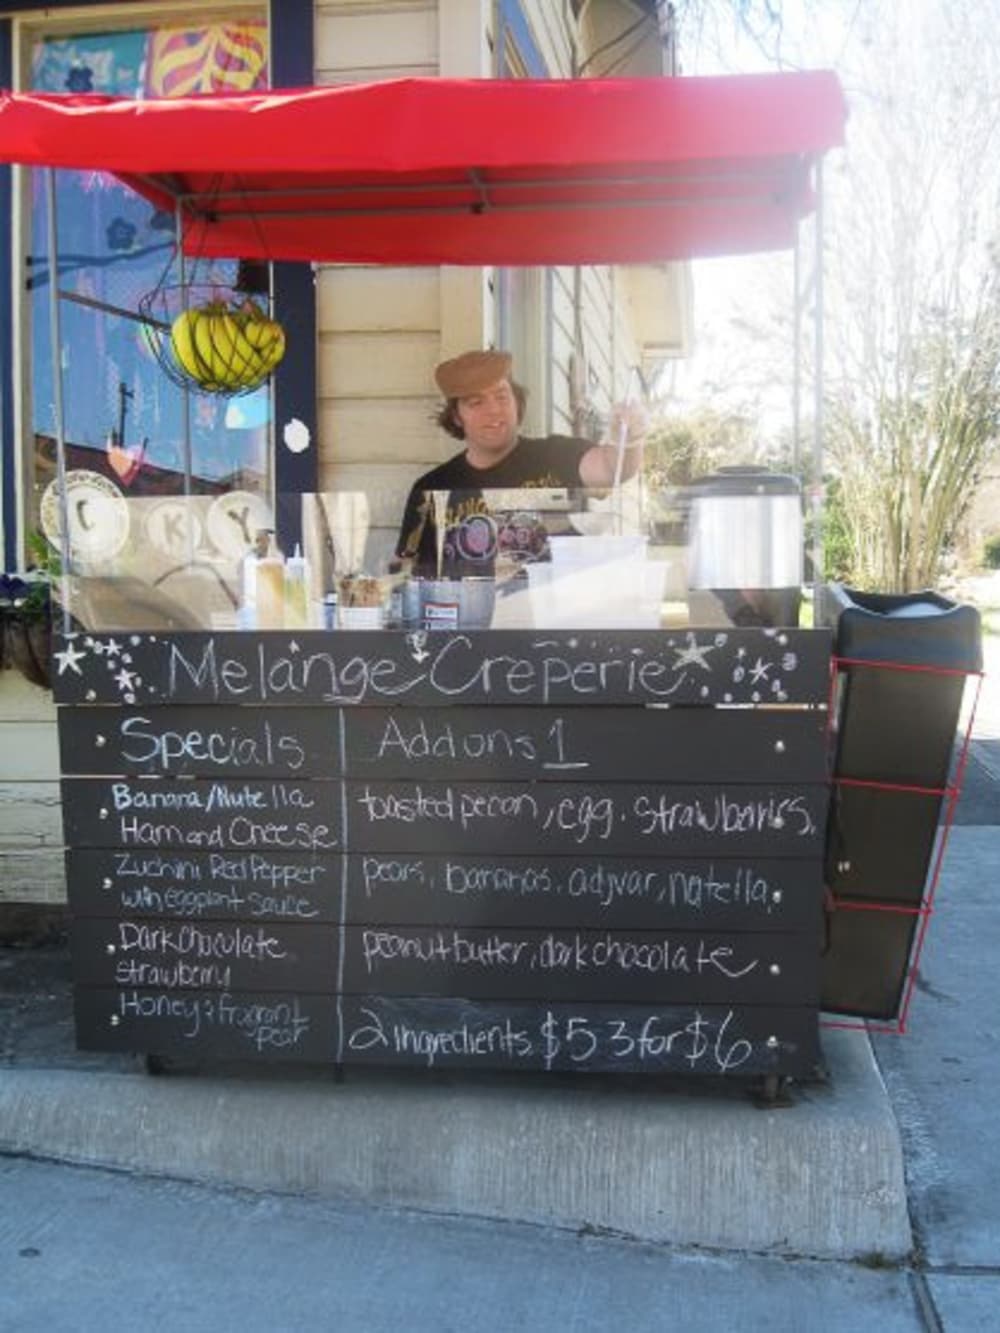 C K Y
Melange Creperie
Specials
Banana/Nutella
Ham and Cheese
Zuchini Red Pepper
with eggplant sauce
Dark Chocolate
Strawberry
Honey & fragrant
pear
Add ons 1
toasted pecan, egg, strawberries,
pears, bananas, adjvar, nutella,
peanut butter, dark chocolate
2 Ingredients $5 3 for $6